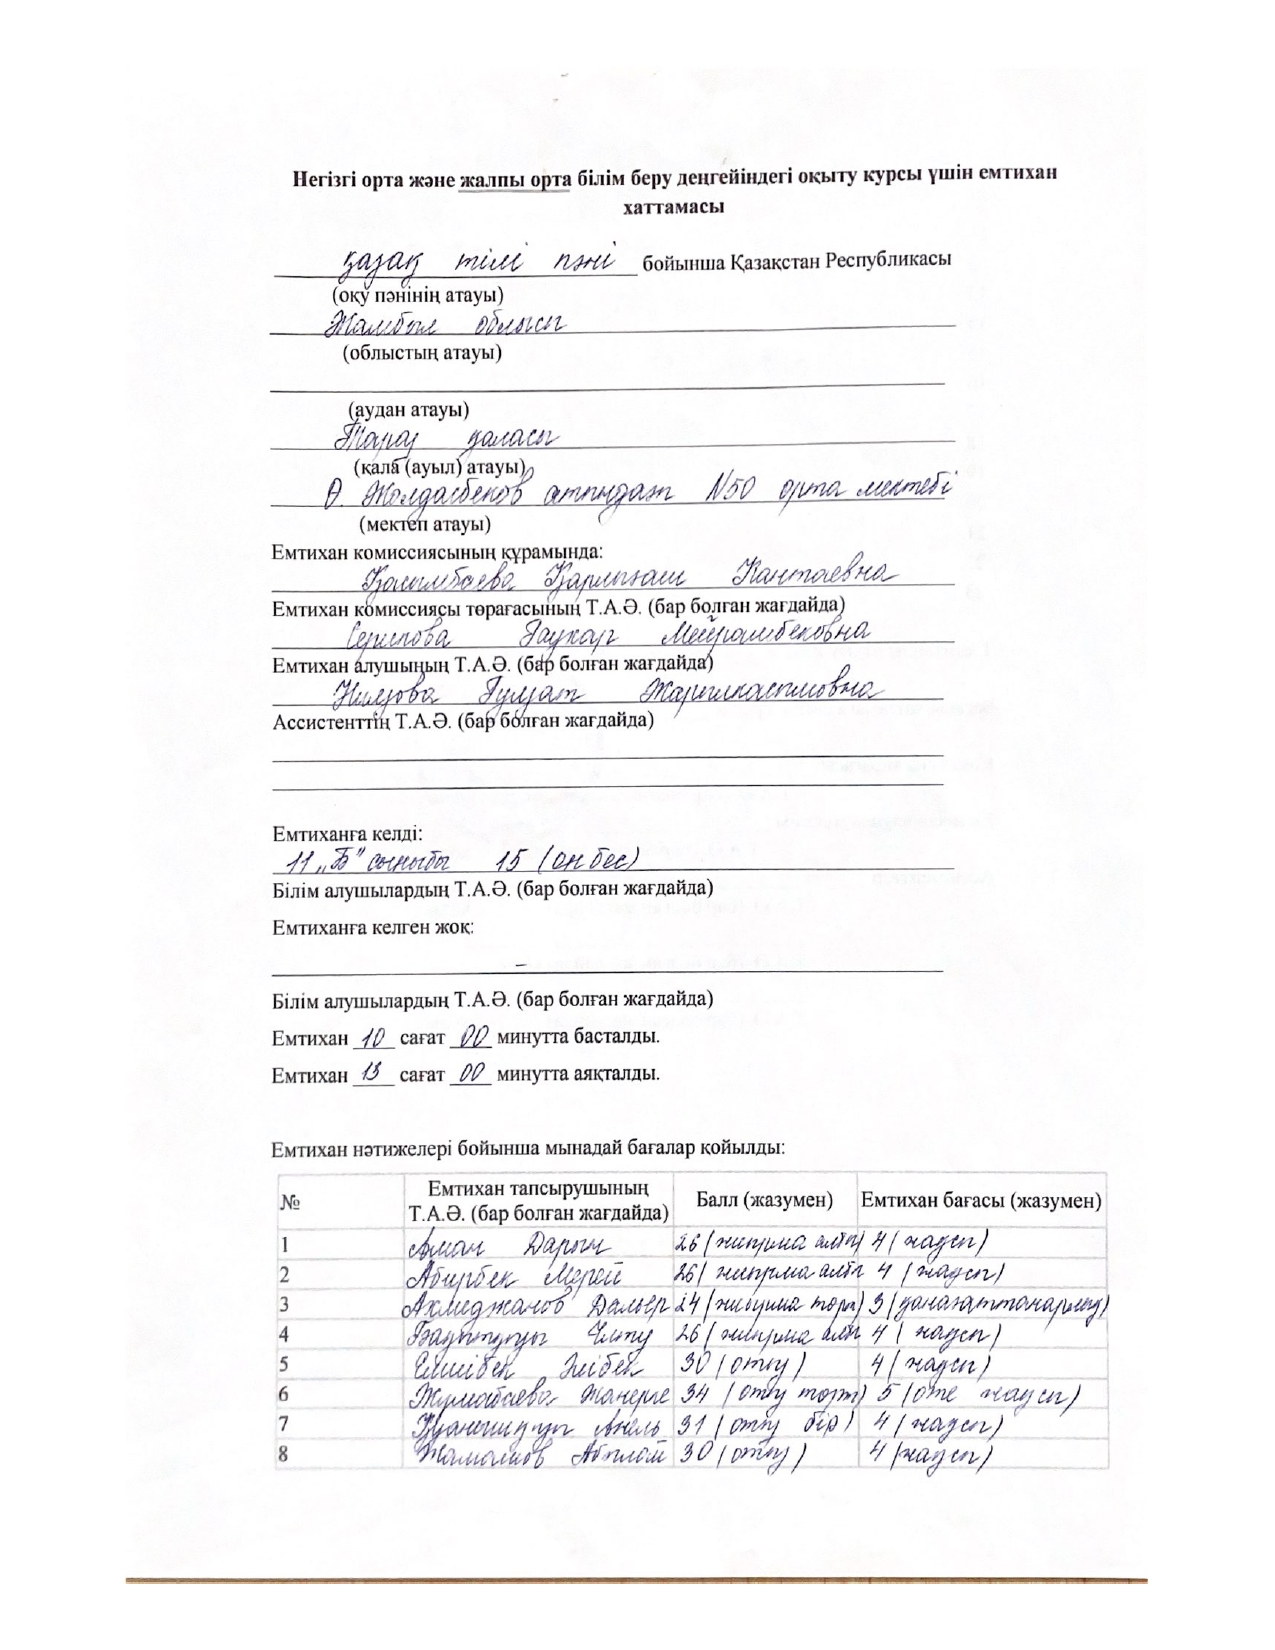 Негізгі орта және жалпы орта білім беру деңгейіндегі оқыту курсы үшін емтихан
хаттамасы
қазақ тілі пәні бойынша Қазақстан Республикасы
(оқу пәнінің атауы)
Жамбыл облысы
(облыстың атауы)
(аудан атауы)
Тараз қаласы
(қала (ауыл) атауы)
Ө. Жолдасбеков атындағы №50 орта мектебі
(мектеп атауы)
Емтихан комиссиясының құрамында:
Қасымбаева Қарлығаш Кантаевна
Емтихан комиссиясы төрағасының Т.А.Ә. (бар болған жағдайда)
Серипова Гаухар Мейрамбековна
Емтихан алушының Т.А.Ә. (бар болған жағдайда)
Гулжат
Ассистенттің Т.А.Ә. (бар болған жағдайда)
Емтиханға келді:
11 „Б" сыныбы 15 (он бес)
Білім алушылардың Т.А.Ә. (бар болған жағдайда)
Емтиханға келген жоқ:
–
Білім алушылардың Т.А.Ә. (бар болған жағдайда)
Емтихан 10 сағат 00 минутта басталды.
Емтихан 13 сағат 00 минутта аяқталды.
Емтихан нәтижелері бойынша мынадай бағалар қойылды:
№ Емтихан тапсырушының Т.А.Ә. (бар болған жағдайда) Балл (жазумен) Емтихан бағасы (жазумен)
1 Аман Дарын 26 (жиырма алты) 4 (жақсы)
2 Абирбек Мерей 26 (жиырма алты 4 (жақсы)
3 Ахмеджанов Дальер 24 (жиырма төрт) 3 (қанағаттанарлық)
4 26 (жиырма алты 4 (жақсы)
5 Елшібек Әлібек 30 (отыз) 4 (жақсы)
6 Жумабаева Жанерке 34 (отыз төрт) 5 (өте жақсы)
7 Анель 31 (отыз бір) 4 (жақсы)
8 Жамалиов Абылай 30 (отыз) 4 (жақсы)